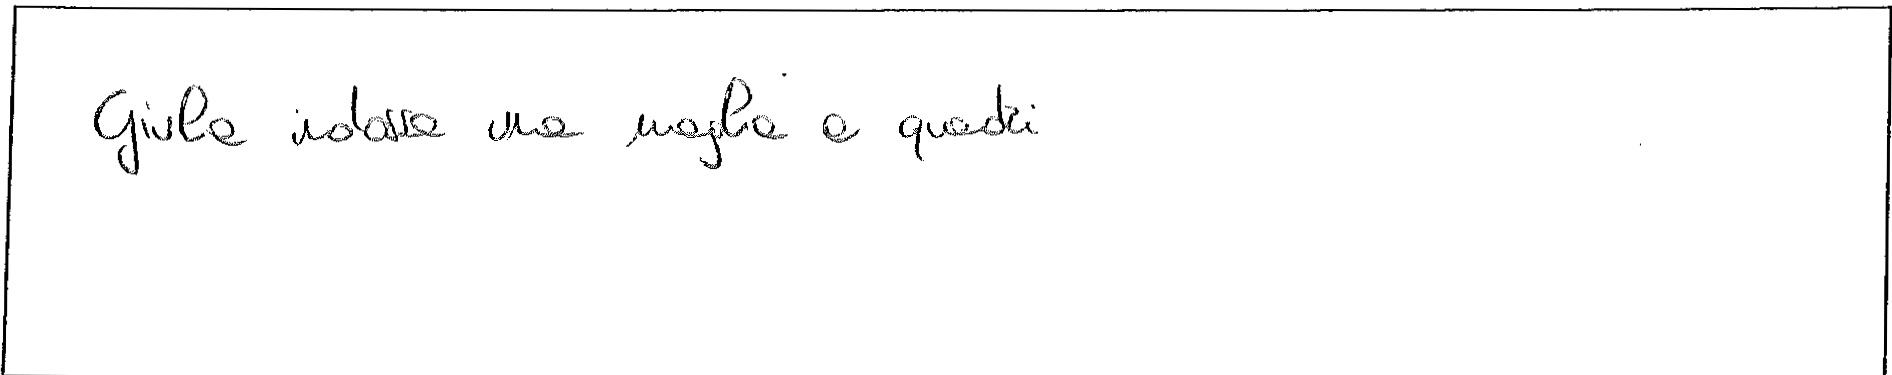 Giulia indossa una maglia a quadri